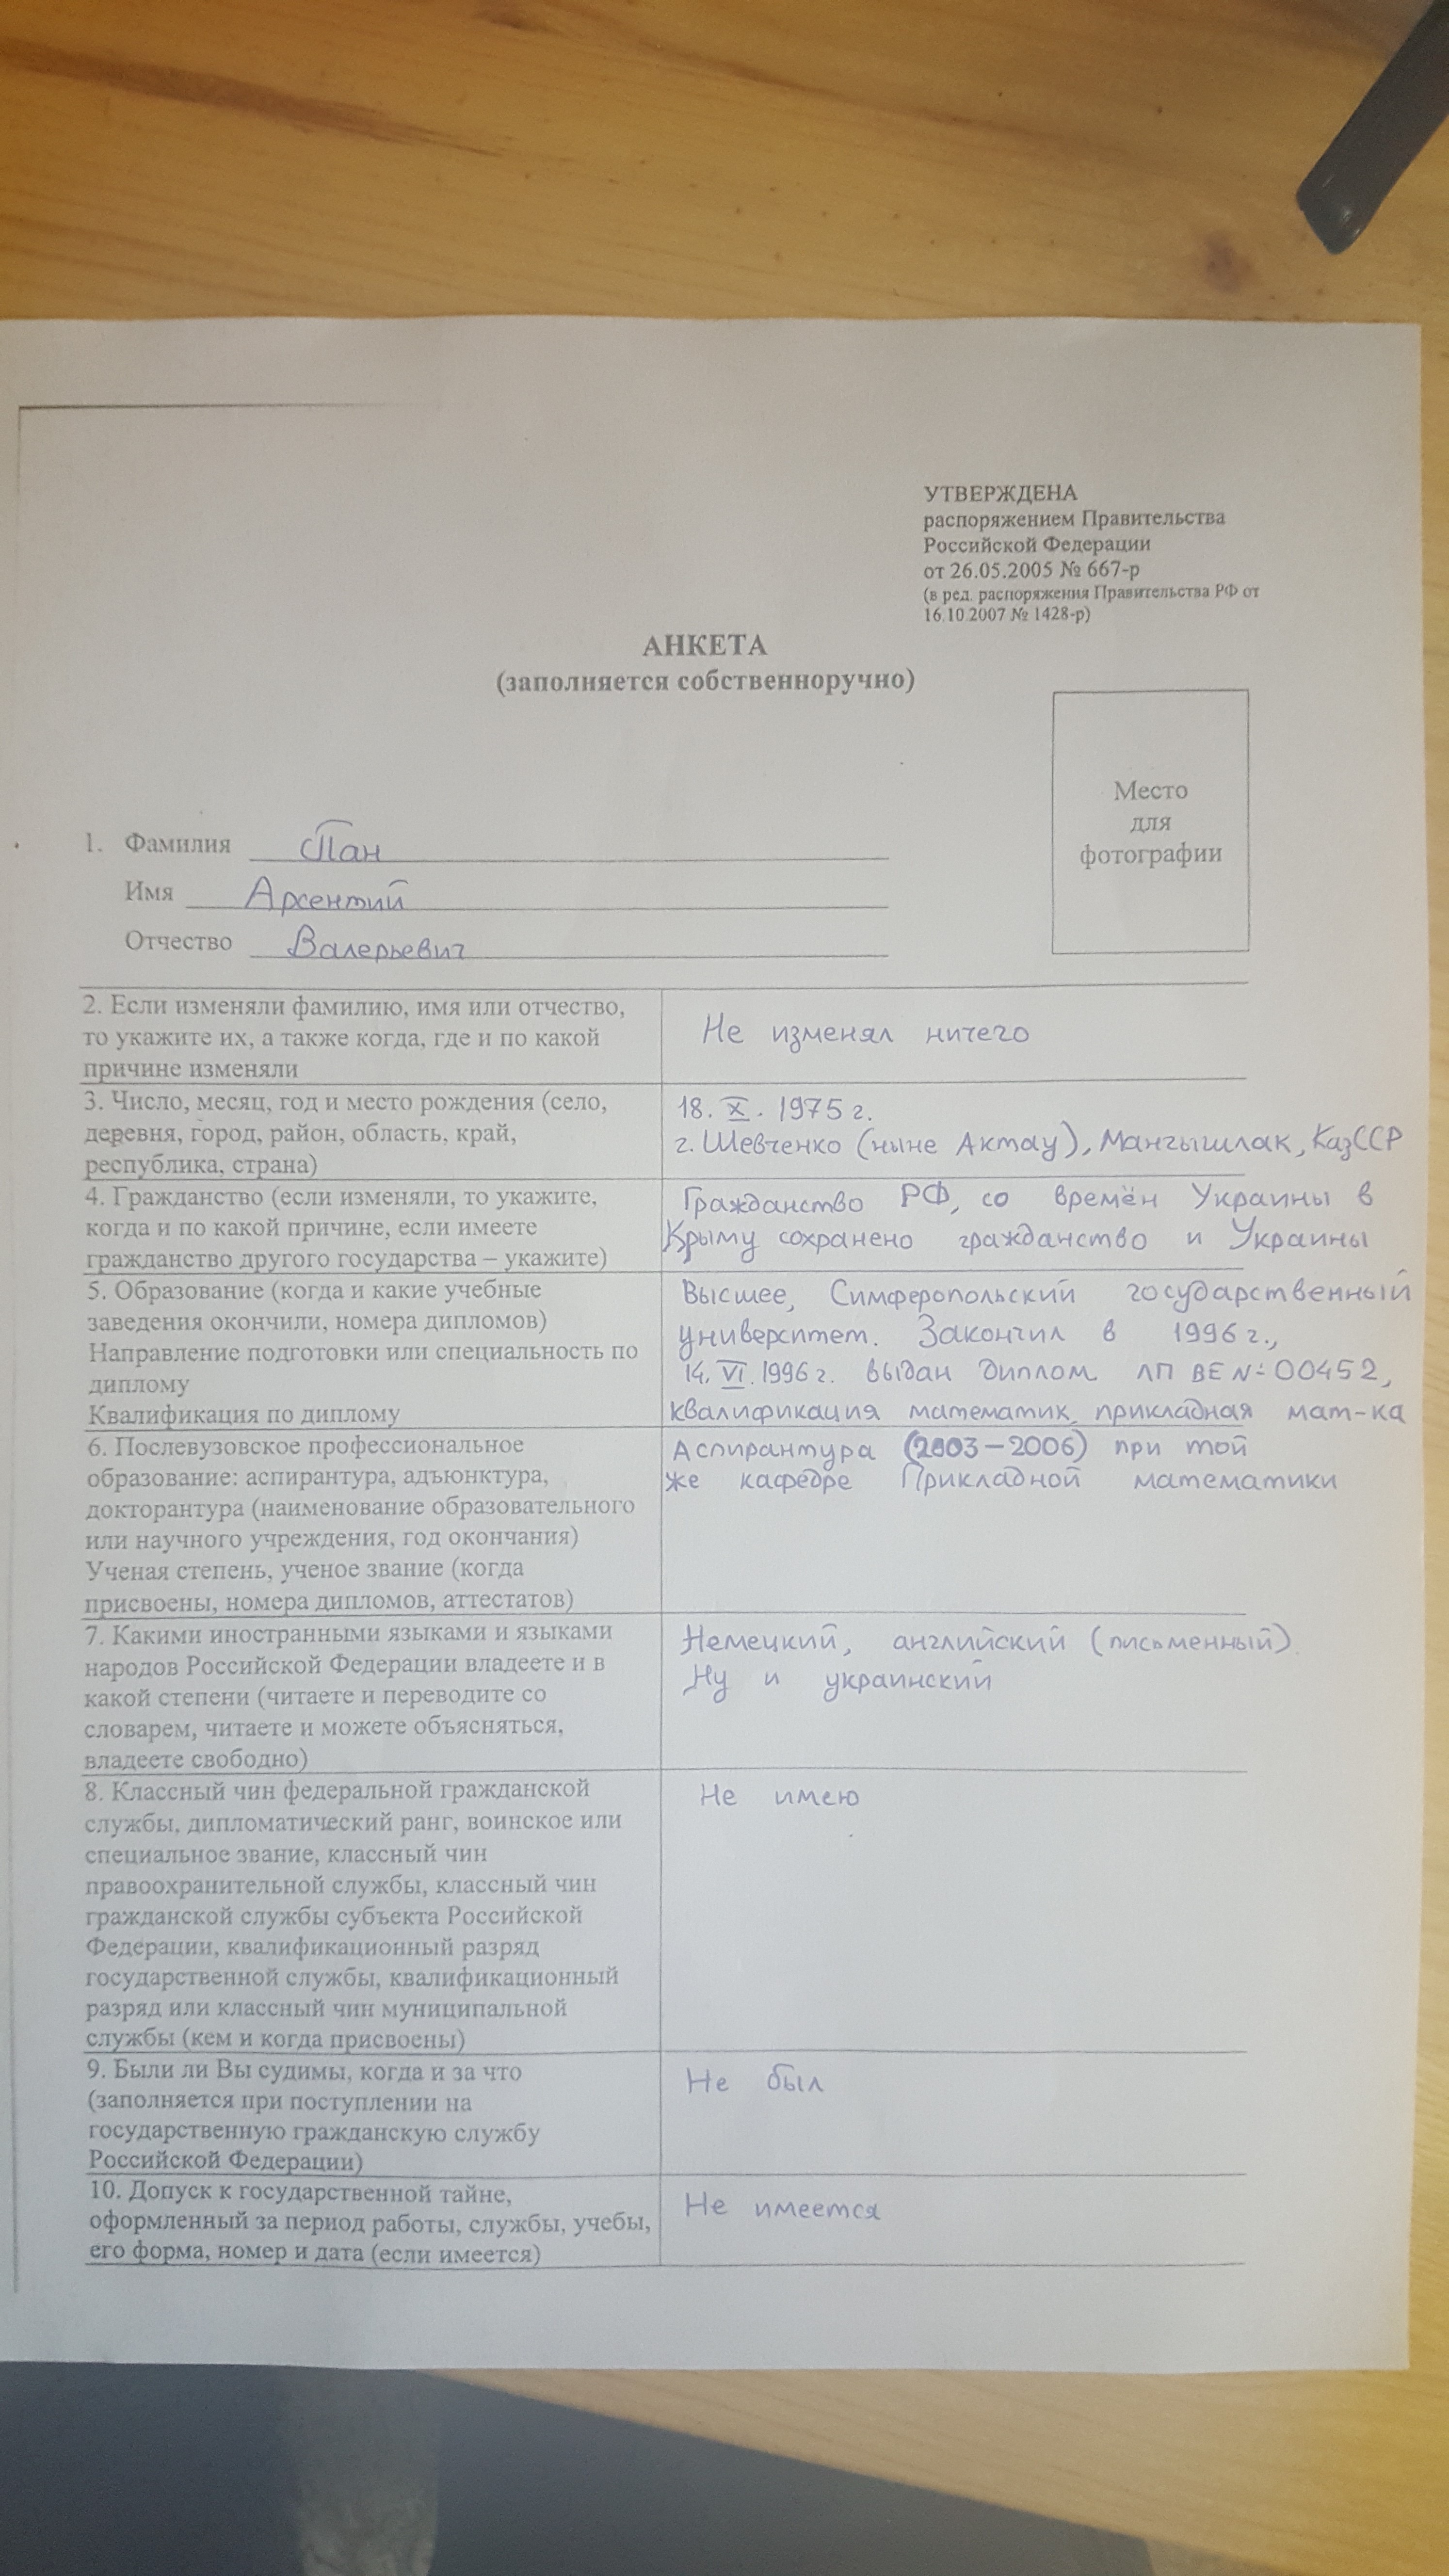 УТВЕРЖДЕНА
распоряжением Правительства
Российской Федерации
от 26.05.2005 № 667-р
(в ред. распоряжения Правительства РФ от
16.10.2007 № 1428-р)
АНКЕТА
(заполняется собственноручно)
Место
для
фотографии
1. Фамилия Пан
Имя Арсентий
Отчество Валерьевич
2. Если изменяли фамилию, имя или отчество,
то укажите их, а также когда, где и по какой
причине изменяли
Не изменял ничего
3. Число, месяц, год и место рождения (село,
деревня, город, район, область, край,
республика, страна)
18. X. 1975 г.
г. Шевченко (ныне Актау), Мангышлак, КазССР
4. Гражданство (если изменяли, то укажите,
когда и по какой причине, если имеете
гражданство другого государства – укажите)
Гражданство РФ, со времён Украины в
Крыму сохранено гражданство и Украины
5. Образование (когда и какие учебные
заведения окончили, номера дипломов)
Направление подготовки или специальность по
диплому
Квалификация по диплому
Высшее, Симферопольский государственный
университет. Закончил в 1996 г.,
14. VI. 1996 г. выдан диплом ЛП ВЕ № 00452,
квалификация математик, прикладная мат-ка
6. Послевузовское профессиональное
образование: аспирантура, адъюнктура,
докторантура (наименование образовательного
или научного учреждения, год окончания)
Ученая степень, ученое звание (когда
присвоены, номера дипломов, аттестатов)
Аспирантура (2003 – 2006) при той
же кафедре Прикладной математики
7. Какими иностранными языками и языками
народов Российской Федерации владеете и в
какой степени (читаете и переводите со
словарем, читаете и можете объясняться,
владеете свободно)
Немецкий, английский (письменный).
Ну и украинский
8. Классный чин федеральной гражданской
службы, дипломатический ранг, воинское или
специальное звание, классный чин
правоохранительной службы, классный чин
гражданской службы субъекта Российской
Федерации, квалификационный разряд
государственной службы, квалификационный
разряд или классный чин муниципальной
службы (кем и когда присвоены)
Не имею
9. Были ли Вы судимы, когда и за что
(заполняется при поступлении на
государственную гражданскую службу
Российской Федерации)
Не был
10. Допуск к государственной тайне,
оформленный за период работы, службы, учебы,
его форма, номер и дата (если имеется)
Не имеется